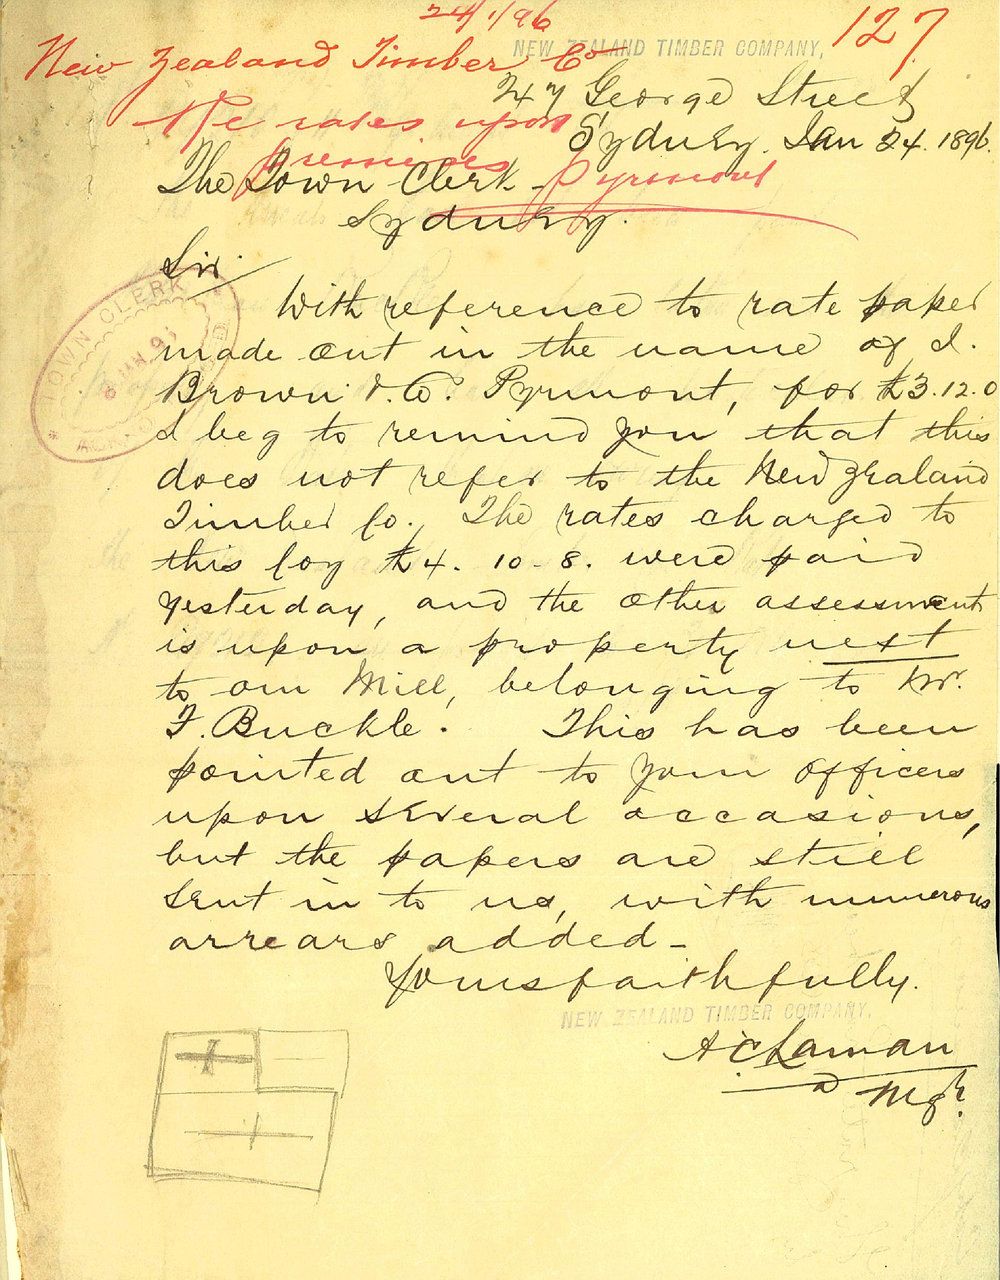 24/1/96
127
New Zealand Timber Co
NEW ZEALAND TIMBER COMPANY,
247 George Street
Re rates upon
Sydney. Jan 24. 1896.
premises Pyrmont
The Town Clerk
Sydney.
Sir.
TOWN CLERK
With reference to rate paper
made out in the name of I.
Brown & Co. Pyrmont, for £3.12.0
I beg to remind you that this
does not refer to the New Zealand
Timber Co. The rates charged to
this Coy £4. 10-8. were paid
yesterday, and the other assessment
is upon a property next
to our Mill, belonging to Mr.
F. Buckle. This has been
pointed out to your officers
upon several occasions,
but the papers are still
sent in to us, with numerous
arrears added -
Yours faithfully.
NEW ZEALAND TIMBER COMPANY,
Mgr.